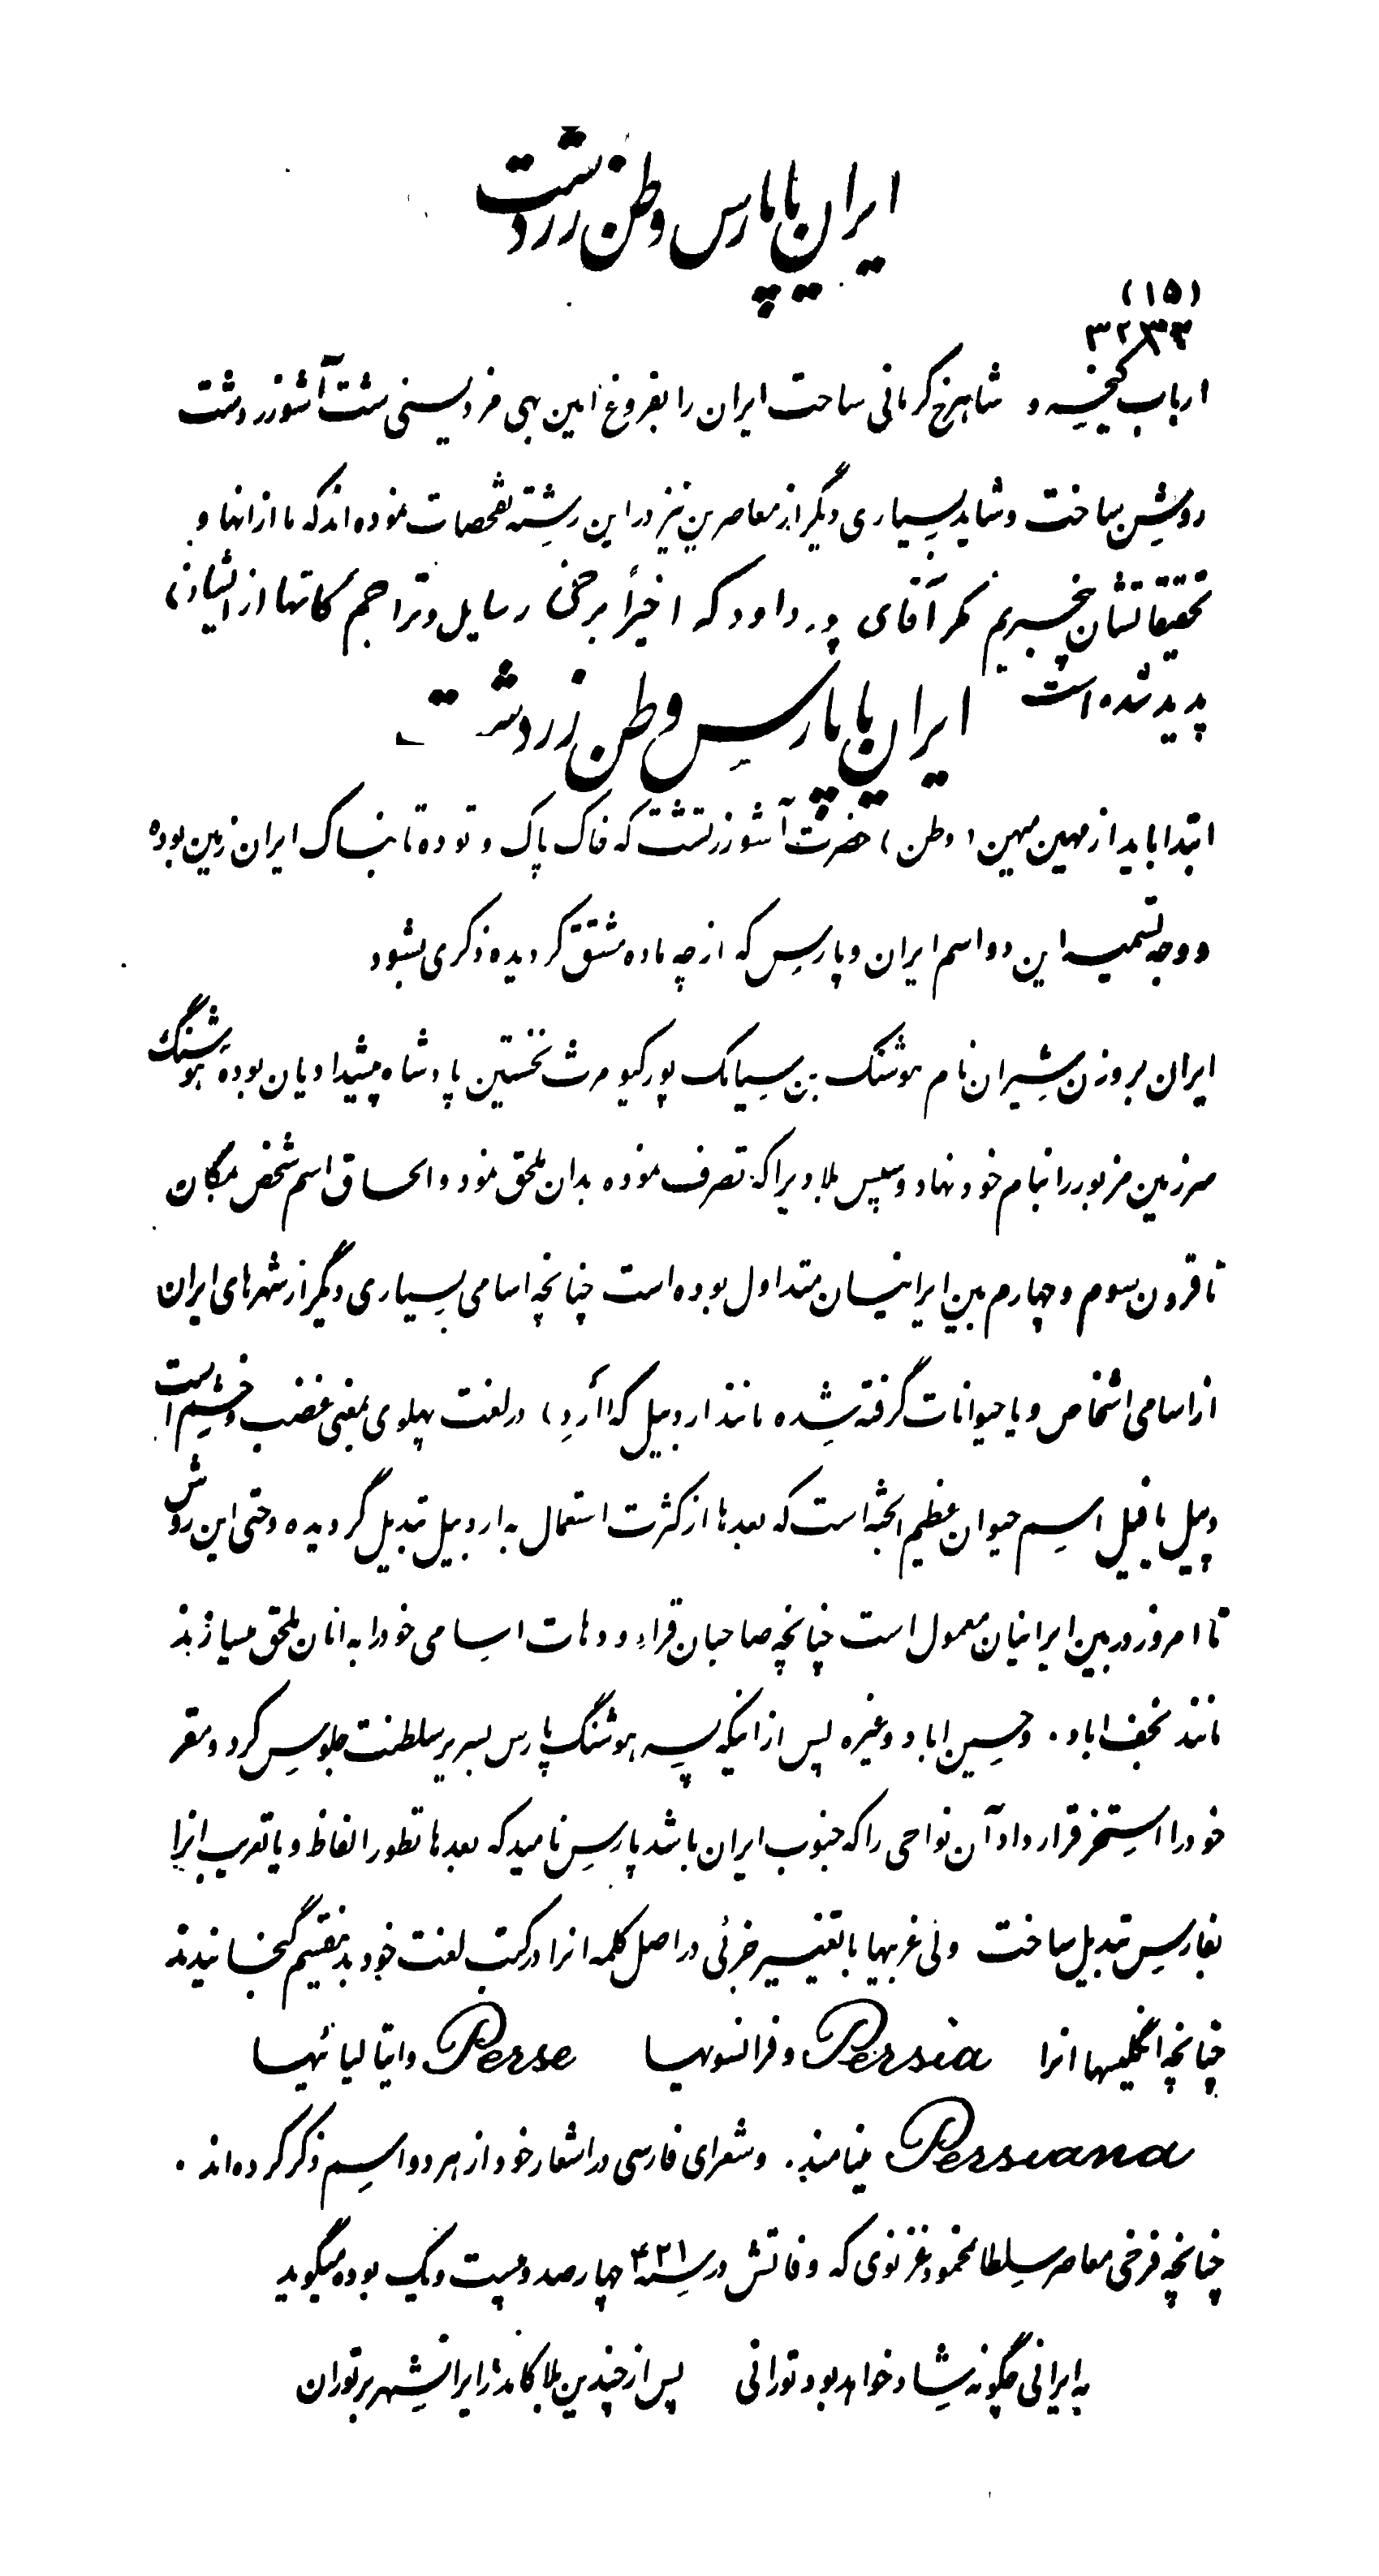 ایران یا پارس وطن زردشت
(۱۵)
ارباب کیخسرو شاهرخ کرمانی ساحت ایران را بفروغ آیین بهی مزدیسنی شت آشوزردشت
روشن ساخت و شاید بسیاری دیگر از معاصرین نیز در این رشته تفحصات نموده اند که ما از انها و
تحقیقاتشان بیخبریم مگر آقای پورداود که اخیراً برخی رسایل و تراجم گاتها از ایشان
پدید شده است
ایران یا پارس وطن زردشت
ابتدا باید از مهین میهن (وطن) حضرت آشوزرتشت که خاک پاک و توده تابناک ایران زمین بوده
و وجه تسمیه این دو اسم ایران و پارس که از چه ماده مشتق گردیده ذکری بشود
ایران بر وزن شیران نام هوشنگ بن سیامک پور کیومرث نخستین پادشاه پیشدادیان بوده هوشنگ
سرزمین مزبور را بنام خود نهاد و سپس بلادیرا که تصرف نموده بدان ملحق نمود و الحاق اسم شخص بمکان
تا قرون سوم و چهارم بین ایرانیان متداول بوده است چنانچه اسامی بسیاری دیگر از شهرهای ایران
از اسامی اشخاص و یا حیوانات گرفته شده مانند اردبیل که (أردِ) در لغت پهلوی بمعنی غضب و خشم است
و پیل یا فیل اسم حیوان عظیم الجثه است که بعدها از کثرت استعمال به اردبیل تبدیل گردیده و حتی این روش
تا امروز در بین ایرانیان معمول است چنانچه صاحبان قراء و دهات اسامی خود را به انان ملحق میسازند
مانند نجف اباد. و حسین اباد و غیره پس از اینکه پسر هوشنگ پارس بسریر سلطنت جلوس کرد و مقر
خود را استخر قرار داد آن نواحی را که جنوب ایران باشد پارس نامید که بعدها تطور الفاظ و یا تعریب انرا
بفارس تبدیل ساخت ولی غربیها با تغییر جزئی در اصل کلمه انرا در کتب لغت خود بدینقسم گنجانیدند
چنانچه انگلیسها انرا Persia و فرانسویها Perse و ایتالیائیها
Persiana مینامند. و شعرای فارسی در اشعار خود از هر دو اسم ذکر کرده‌اند.
چنانچه فرخی معاصر سلطانمحمود غزنوی که وفاتش در سنه ۴۲۱ چهارصد و بیست و یک بوده میگوید
به ایرانی چگونه شاد خواهد بود تورانی پس از چندین بلا کامد ز ایرانشهر بر توران